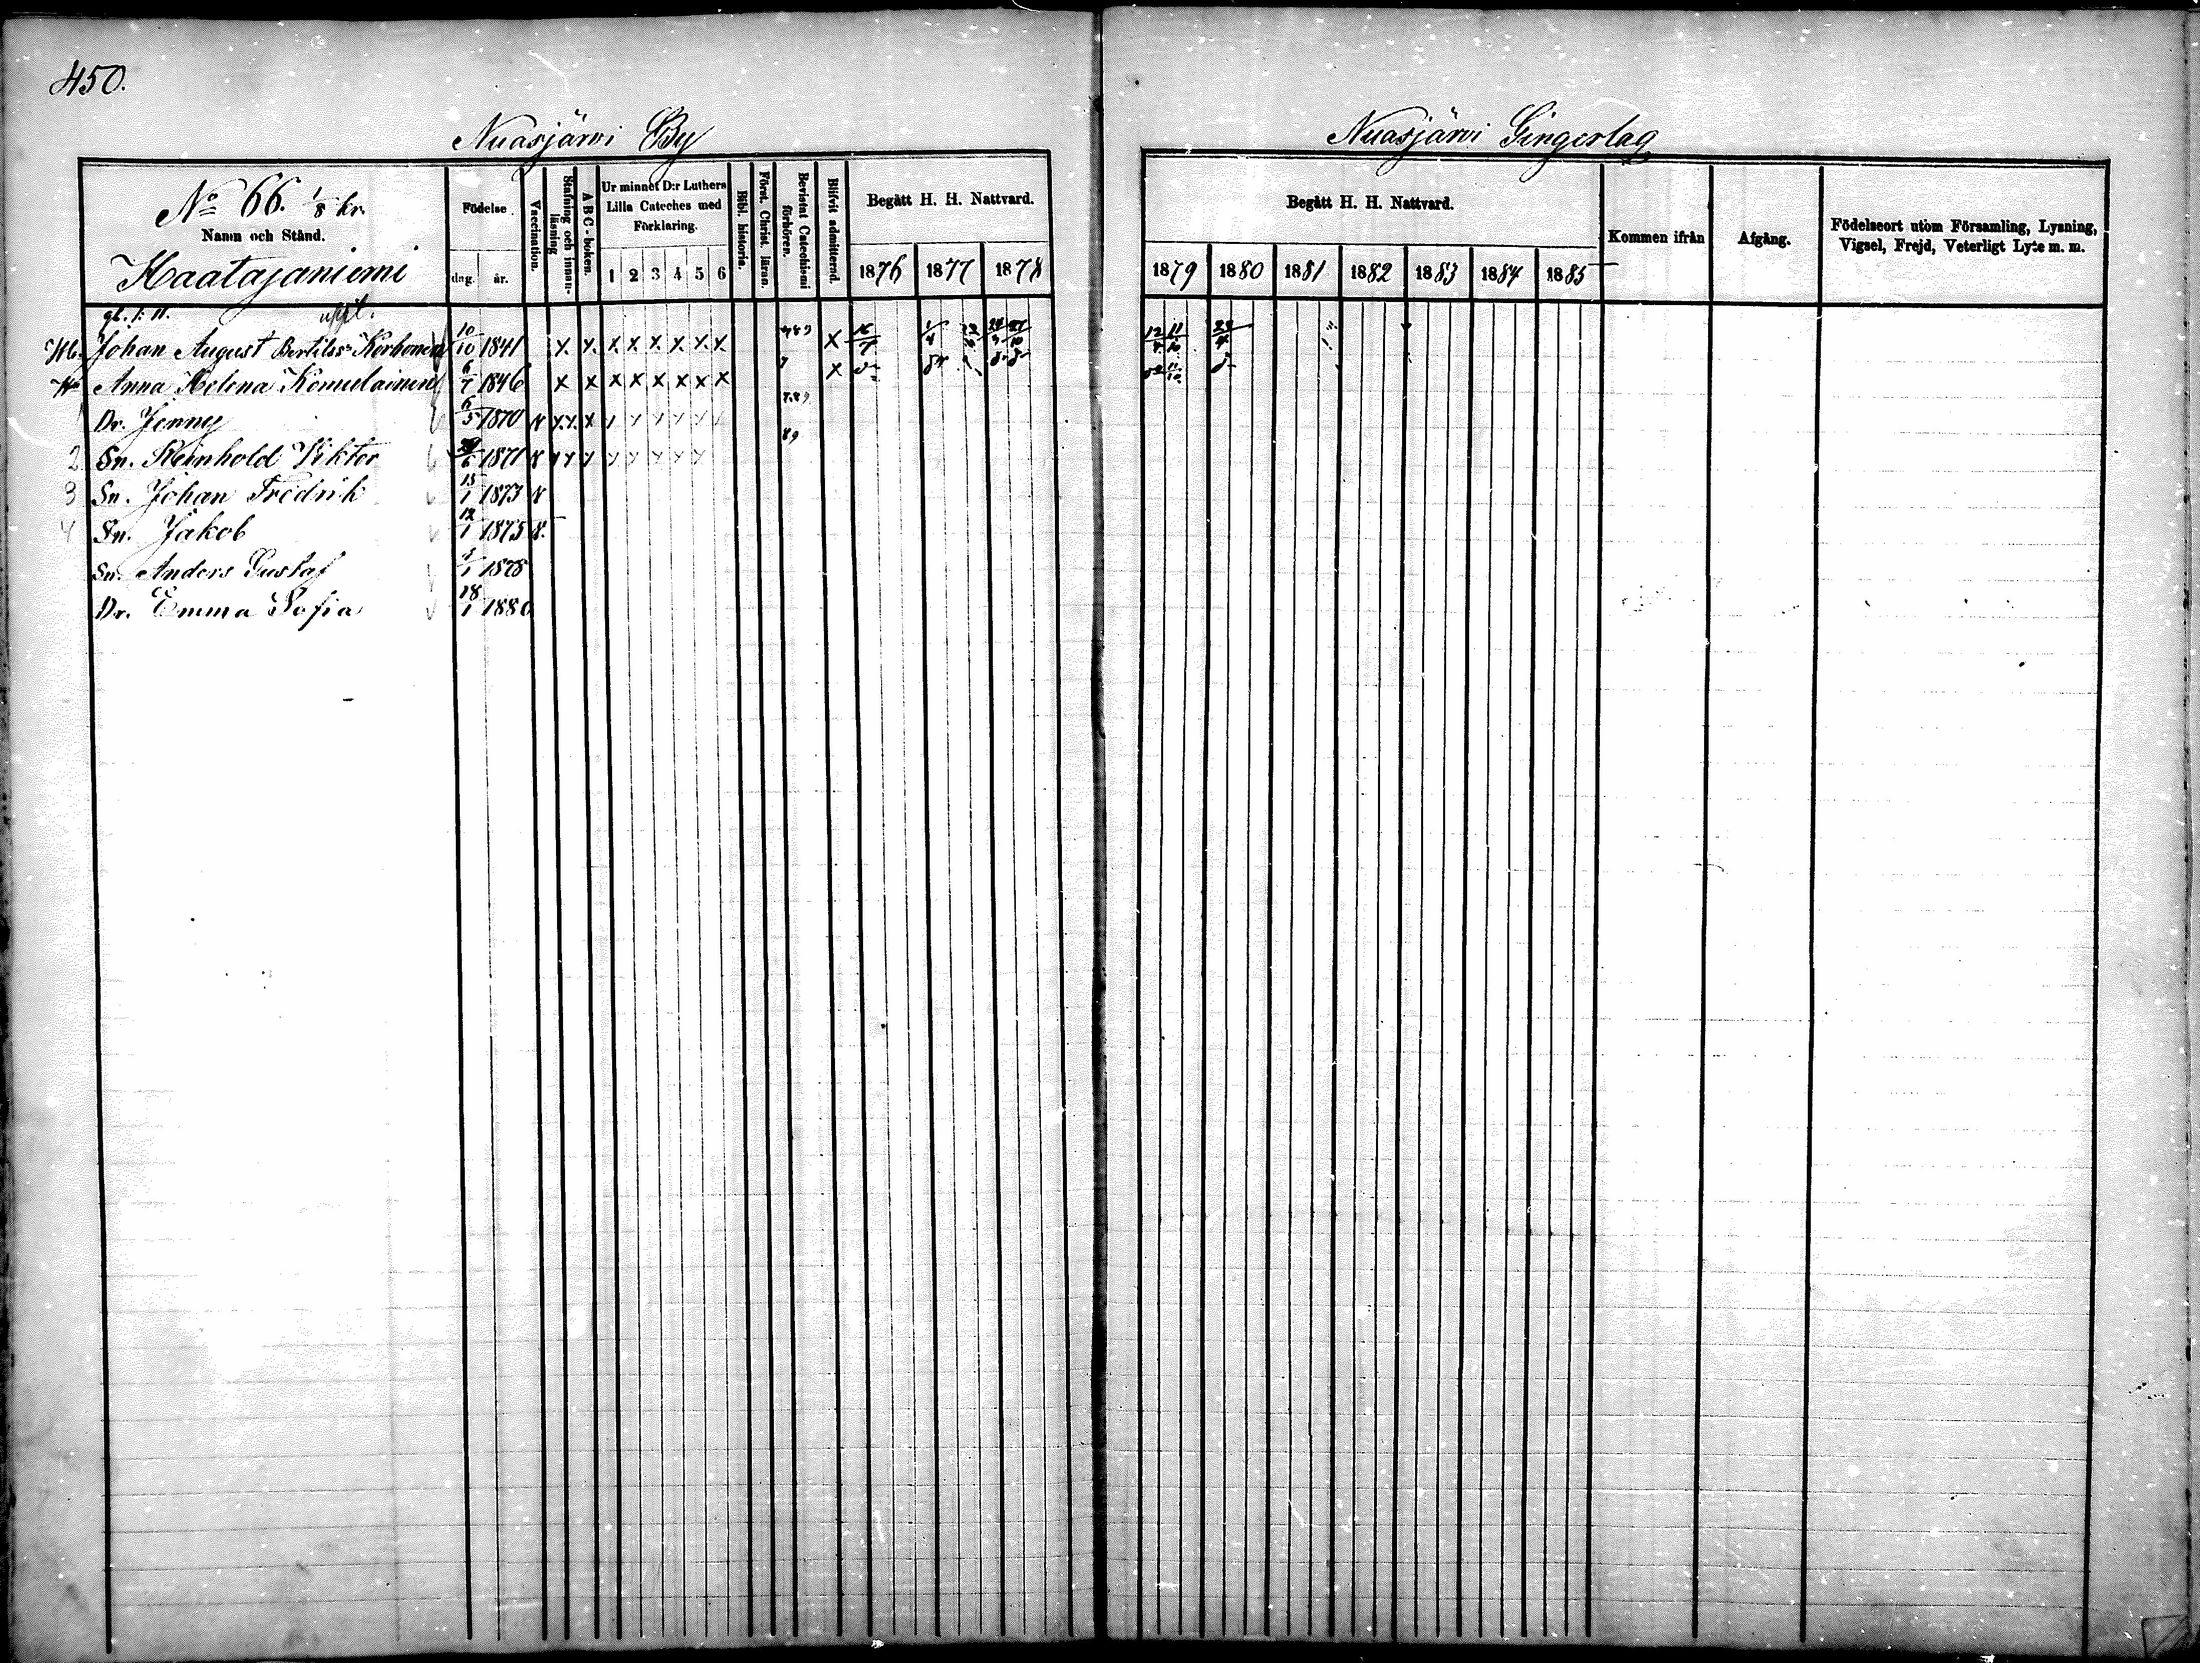 450.
Nuasjärvi By
Nuasjärvi Gingerlag
No 66. 1/8 kr.
Namn och Stånd.
Kaatajaniemi
Födelse.
dag. år.
Vaccination.
Stafning och innan-läsning
A B C-boken.
Ur minnet D:r Luthers
Lilla Cateches med
Förklaring.
1 2 3 4 5 6
Bibl. historia.
Först. Christ. läran.
Bevistat Catechismi förhören.
Blifvit admitterad.
Begått H. H. Nattvard.
1876 1877 1878
Begått H. H. Nattvard.
1879 1880 1881 1882 1883 1884 1885
Kommen ifrån
Afgång.
Födelseort utom Församling, Lysning,
Vigsel, Frejd, Veterligt Lyte m. m.
Johan August Bertilss. Korhonen 10/10 1841 X X X X X X X X X
Anna Helena Komulainen 6/7 1846 X X X X X X X X X
1 Dr. Jenny 6/5 1870
2 Sn. Reinhold Viktor 1871
3 Sn. Johan Fredrik 15/1 1873
4 Sn. Jakob 12/1 1875
Sn. Anders Gustaf 1878
Dr. Emma Sofia 18/1 1880